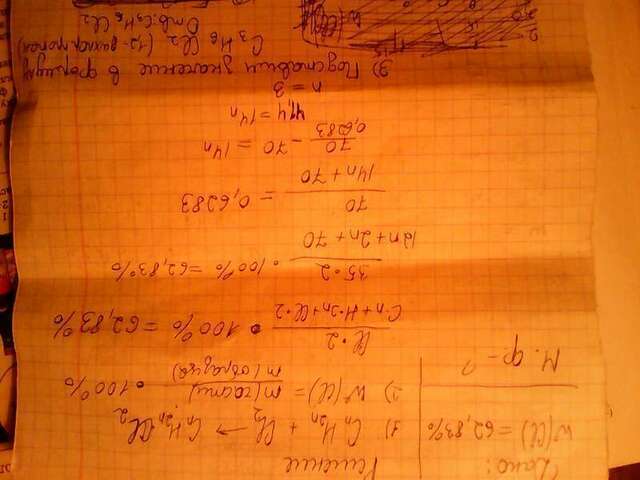 Дано:
W(Cl) = 62,83%
М.ф - ?
Решение
1) CnH2n + Cl2 → CnH2nCl2
2) W(Cl) = m(части) / m(образца) · 100%
Cl·2 / C·n + H·2n + Cl·2 · 100% = 62,83%
35·2 / 12n + 2n + 70 · 100% = 62,83%
70 / 14n + 70 = 0,6283
70 / 0,6283 - 70 = 14n
41,4 = 14n
n = 3
3) Подставим значение в формулу
C3H6Cl2 (1,2-дихлорпропан)
Отв: C3H6Cl2